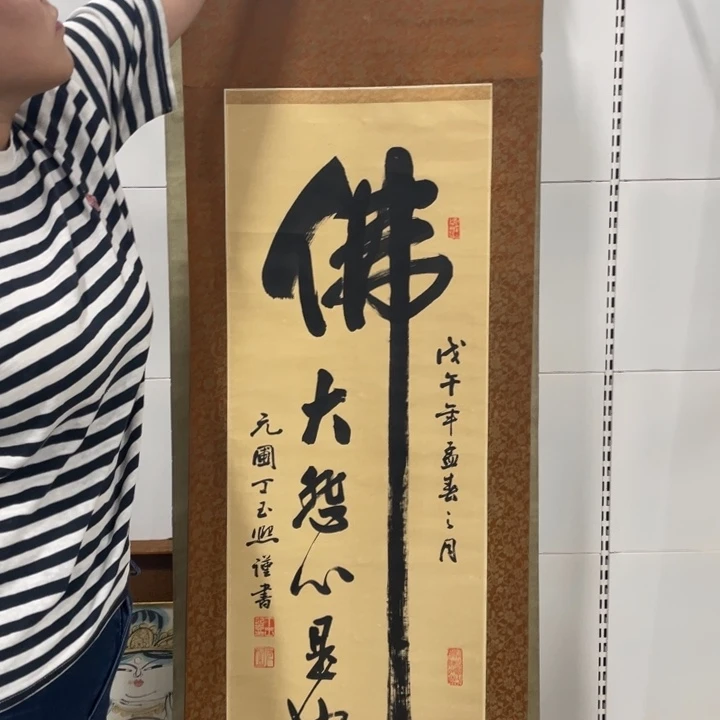 佛
戊午年孟春之月
大慈心是
元圃丁玉熙謹書